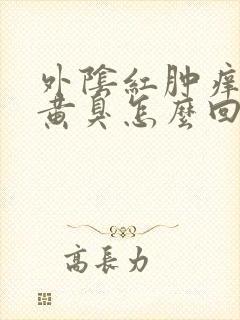 外陰紅肿痒
黄臭怎麼回
高長力